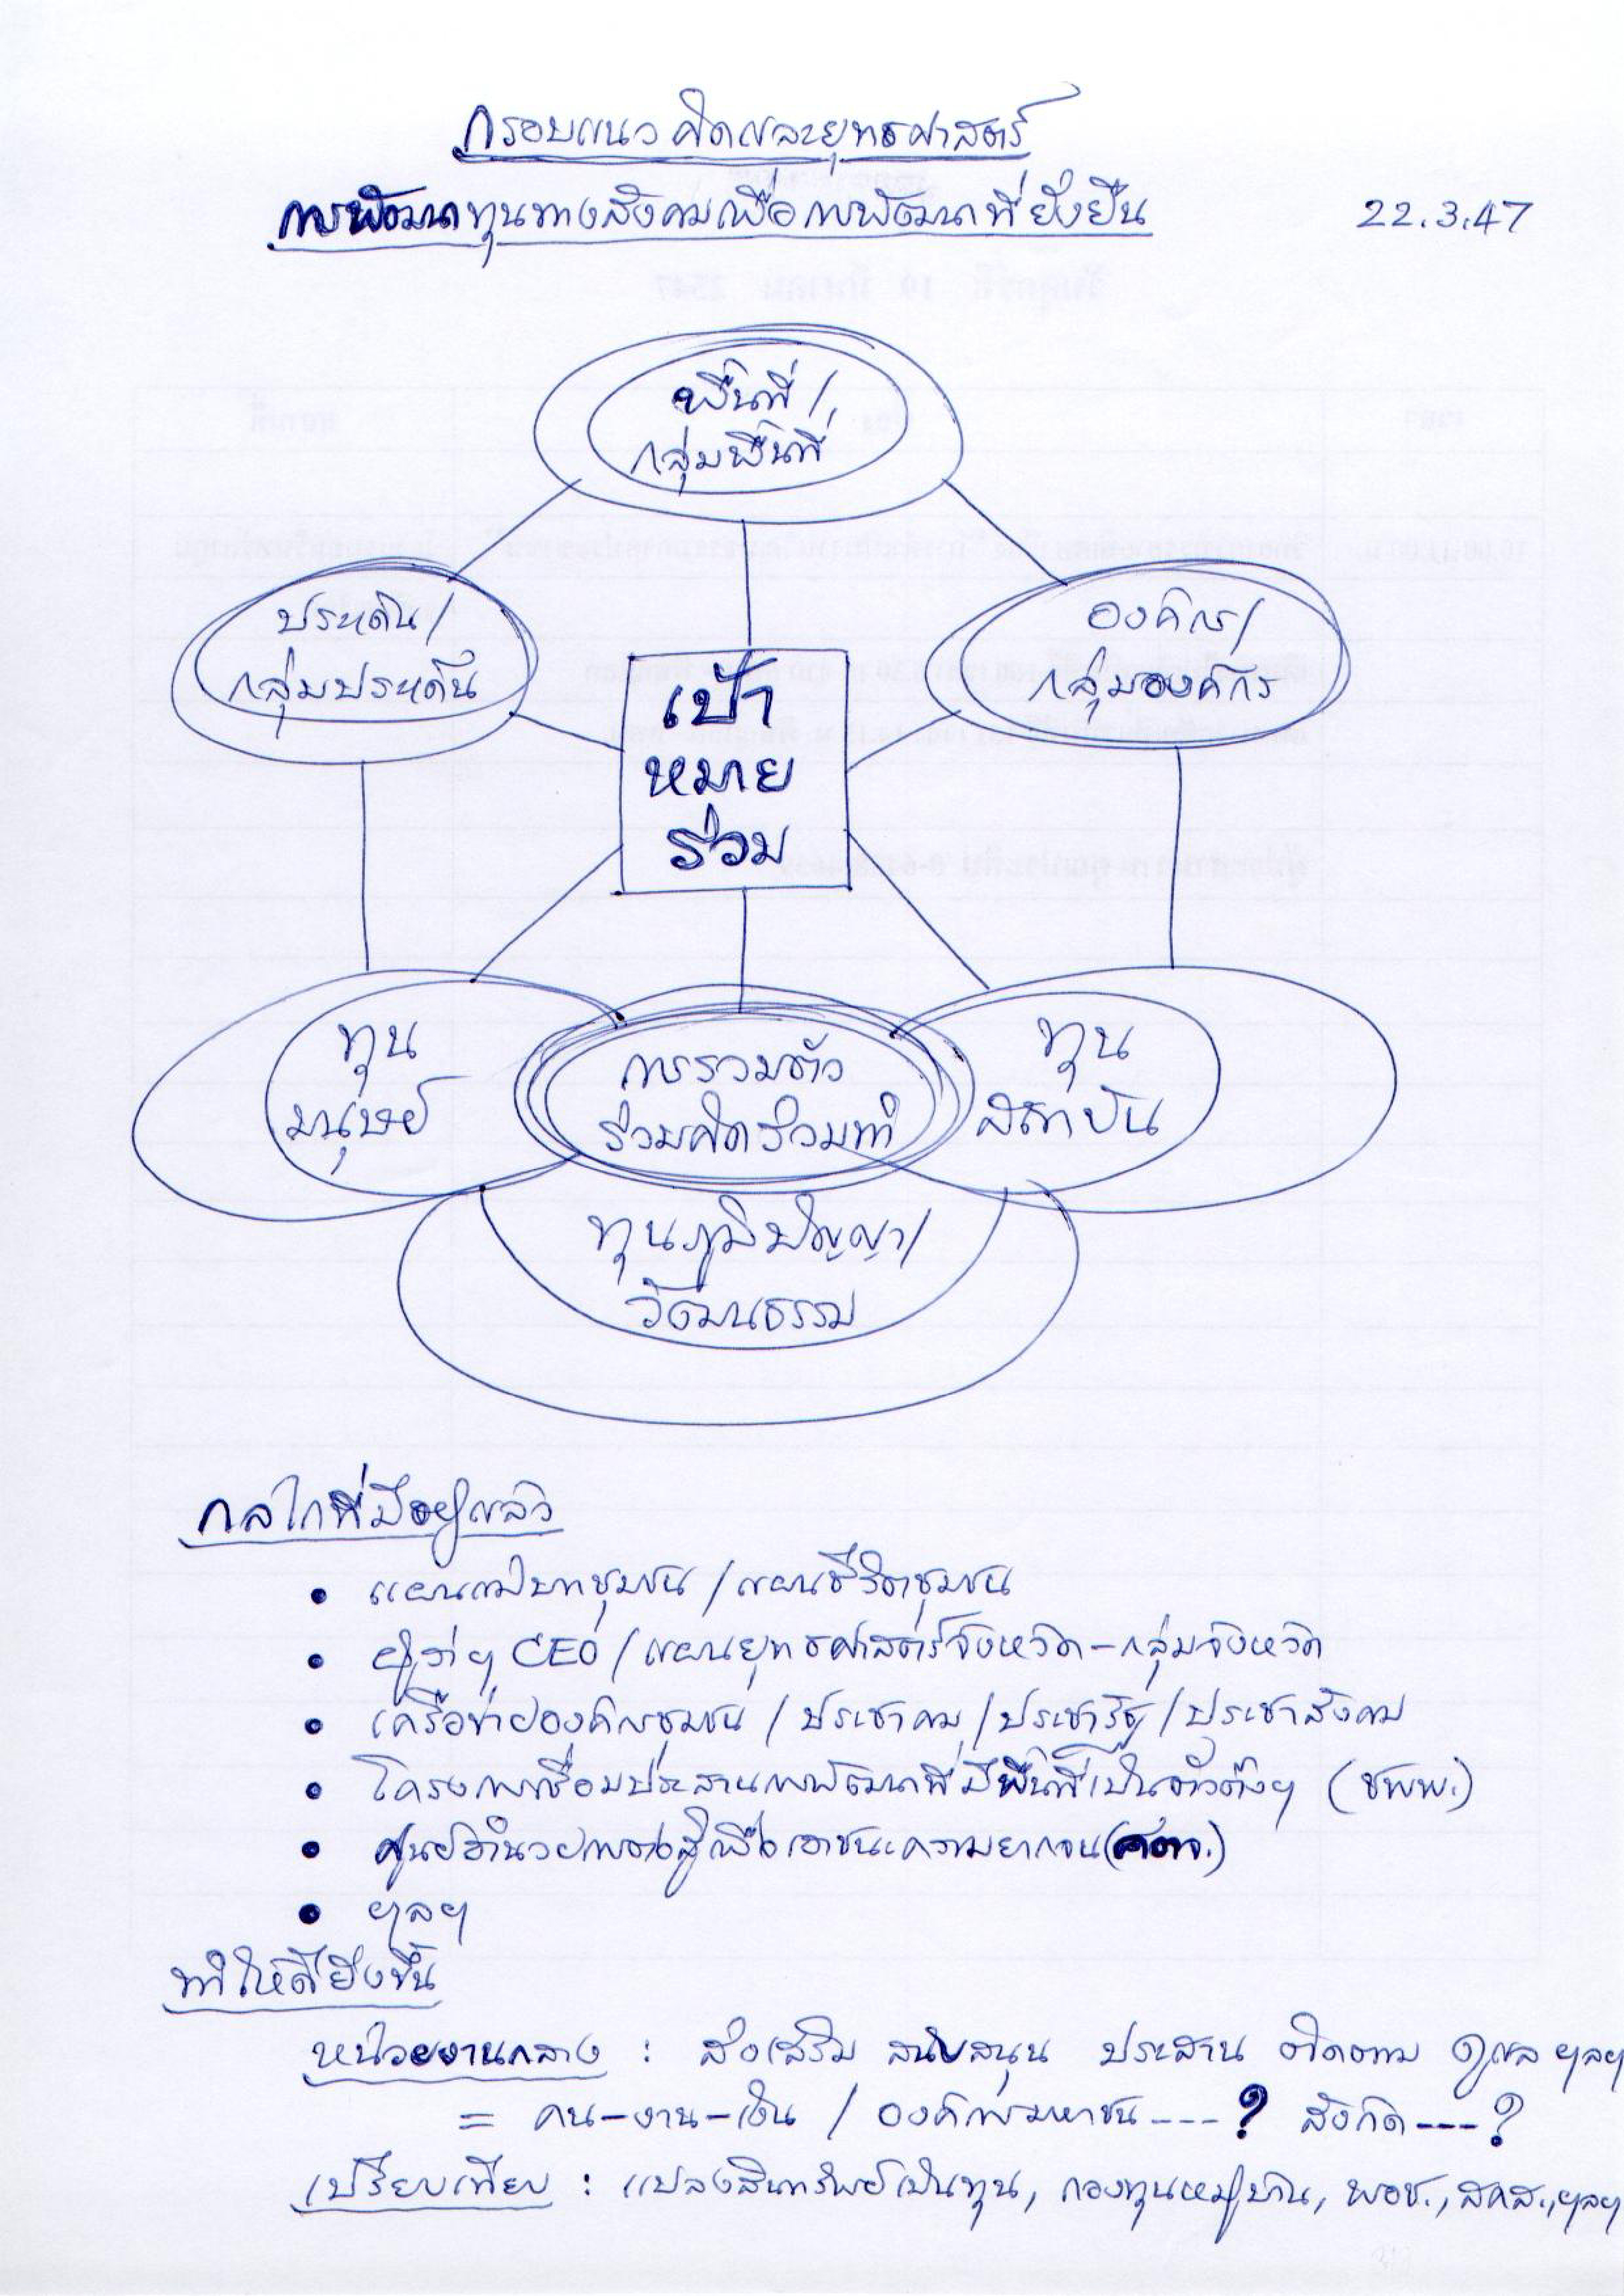 กรอบแนวคิดและยุทธศาสตร์
การพัฒนาทุนทางสังคมเพื่อการพัฒนาที่ยั่งยืน
22.3.47
พื้นที่/
กลุ่มพื้นที่
ประเด็น/
กลุ่มประเด็น
องค์กร/
กลุ่มองค์กร
เป้า
หมาย
ร่วม
ทุน
มนุษย์
การรวมตัว
ร่วมคิดร่วมทำ
ทุน
สถาบัน
ทุนภูมิปัญญา/
วัฒนธรรม
กลไกที่มีอยู่แล้ว
• แผนแม่บทชุมชน / แผนชีวิตชุมชน
• ผู้ว่าฯ CEO / แผนยุทธศาสตร์จังหวัด - กลุ่มจังหวัด
• เครือข่ายองค์กรชุมชน / ประชาคม / ประชารัฐ / ประชาสังคม
• โครงการเชื่อมประสานการพัฒนาที่มีพื้นที่เป็นตัวตั้งฯ (ชพพ.)
• ศูนย์อำนวยการต่อสู้เพื่อเอาชนะความยากจน (ศตจ.)
• ฯลฯ
ทำให้ดียิ่งขึ้น
หน่วยงานกลาง : ส่งเสริม สนับสนุน ประสาน ติดตาม ดูแล ฯลฯ
= คน-งาน-เงิน / องค์การมหาชน ---? สังกัด ---?
เปรียบเทียบ : แปลงสินทรัพย์เป็นทุน, กองทุนหมู่บ้าน, พอช., สคส., ฯลฯ